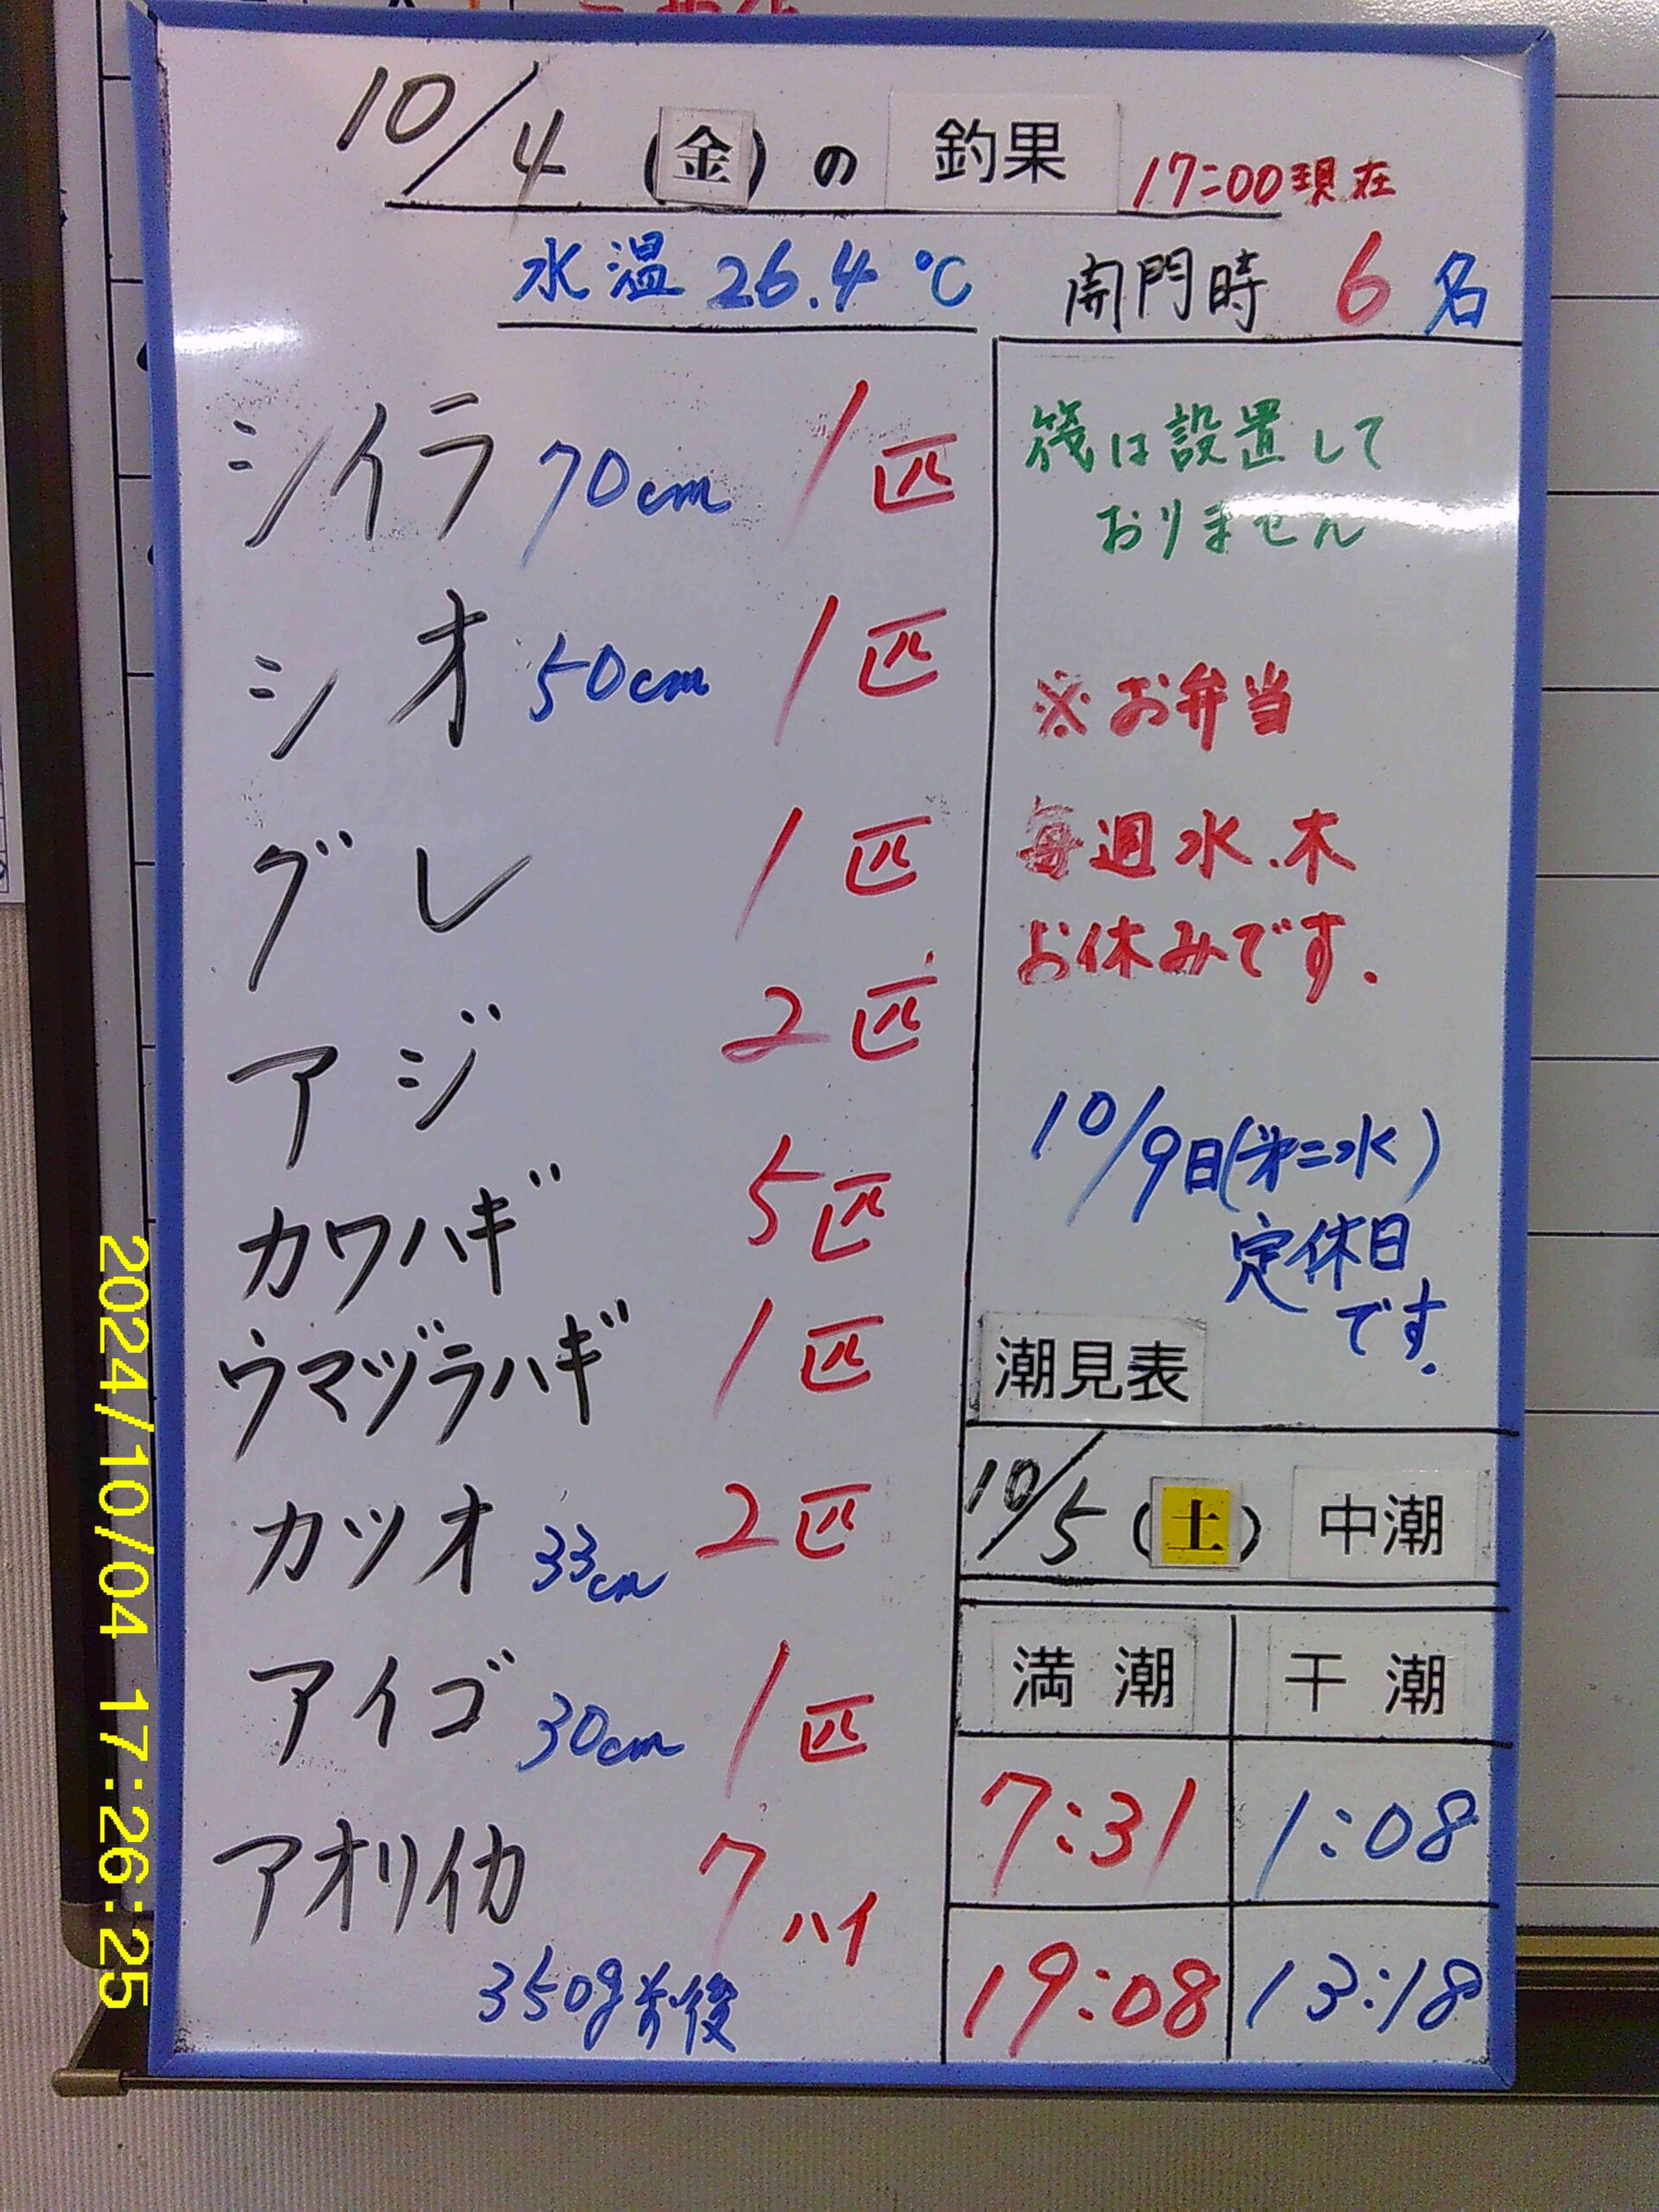 10/4 (金) の 釣果 17:00現在
水温 26.4 ℃ 開門時 6 名
シイラ 70cm 1匹
シオ 50cm 1匹
グレ 1匹
アジ 2匹
カワハギ 5匹
ウマヅラハギ 1匹
カツオ 33cm 2匹
アイゴ 30cm 1匹
アオリイカ 7ハイ
350g前後
筏は設置して
おりません
※お弁当
毎週水.木
お休みです.
10/9日(第二水)
定休日
です.
潮見表
10/5 (土) 中潮
満潮 干潮
7:31 1:08
19:08 13:18
2024/10/04 17:26:25